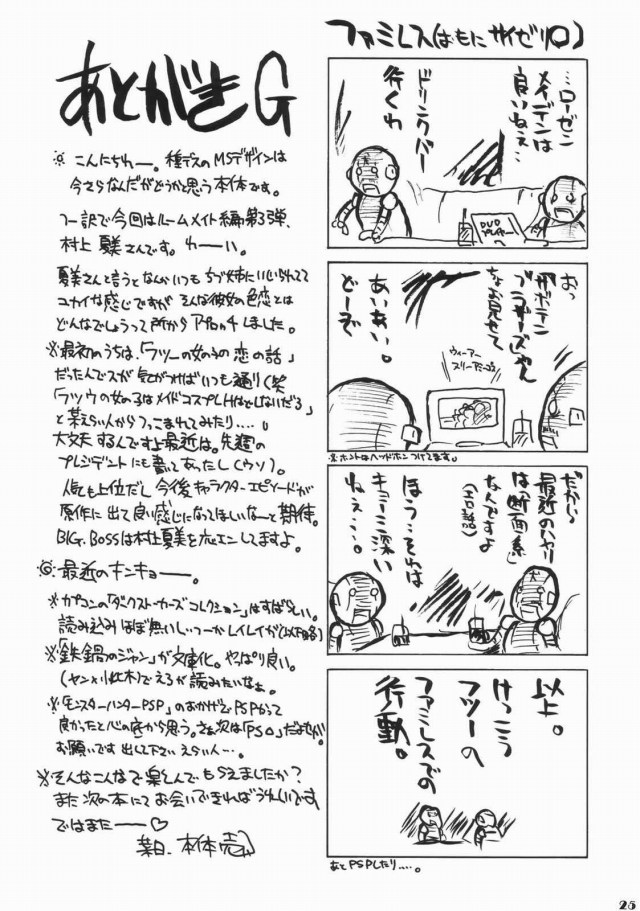 あとがきG
◎ こんにちわー。種デスのMSデザインは
今さらなんだがどうかと思う本体です。
つー訳で今回はルームメイト編第3弾、
村上 夏美さんです。わーい。
夏美さんと言うとなんかいつもちづ姉にいじられてて
ユカイな感じですが そんな彼女の色恋とは
どんなでしょうって所から
しました。
※最初のうちは、「フツーの女の子の恋の話」
だったんでスが 気がつけばいつも通り(笑
「フツウの女の子はメイドコスプレHはとしないだろ」
と某えらい人からつっこまれてみたり‥‥。
大丈夫 するんですよ最近は。先週の
プレジデントにも書いてあったし(ウソ)。
人気も上位だし 今後キャラクターエピソードが
原作に出て良い感じになってほしいなーと期待。
BIG.BOSSは村上夏美を応エンしてますよ。
◎最近のキンキョーー。
※カプコンの「ダークストーカーズコレクション」はすばらしい。
読み込みほぼ無いしっつーかレイレイが(以下略)
※「鉄鍋のジャン」が文庫化。やっぱり良い。
(ヤン×小此木)でえろが読みたいなぁ。
※「モンスターハンターPSP」のおかげでPSPかって
良かったと心の底から思う。さぁ次は「PS○」だ
お願いです 出して下さい えらい人‥‥。
※そんなこんなで楽しんでもらえましたか?
また次の本にてお会いできればうれしいです
ではまたーー♡
某日. 本体 売
ファミレス(おもにサイゼリ○)
…ローゼン
メイデンは
良いねぇ…
ドリンクバー
行くわ
DVD
プレーヤーへ
おっ
「サボテン
ブラザーズ」やん
ちょお見せて
あいあい。
どーぞ
ウィーアー
スリーアミーゴス
※ホントはヘッドホンつけてます。
だから
最近のハヤリ
は「断面系」
なんですよ
(エロ話)
ほう‥それは
キョーミ深い
ねぇ‥‥。
以上。
けっこう
フツーの
ファミレスでの
行動。
あとPSPしたり‥‥。
25